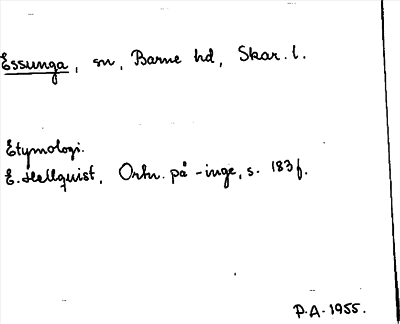 Essunga, sn, Barne hd, Skar. l.
Etymologi.
E. Hellquist, Ortn. på -inge, s. 183 f.
P.A. 1955.